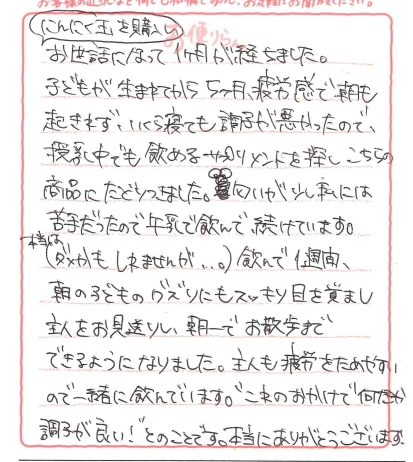 お便り
「にんにく玉」を購入し
お世話になって1ヶ月が経ちました。
子どもが生まれてから5ヶ月、疲労感で朝も
起きれず、いくら寝ても調子が悪かったので、
授乳中でも飲めるサプリメントを探しこちらの
商品にたどりつきました。匂いが少し私には
苦手だったので牛乳で飲んで続けています。
本当は
(ダメかもしれませんが…。)飲んで1週間、
朝の子どものグズリにもスッキリ目を覚まし
主人をお見送りし、朝一でお散歩まで
できるようになりました。主人も疲労をためやすい
ので一緒に飲んでいます。"これのおかげで何だか
調子が良い!"とのことです。本当にありがとうございます!